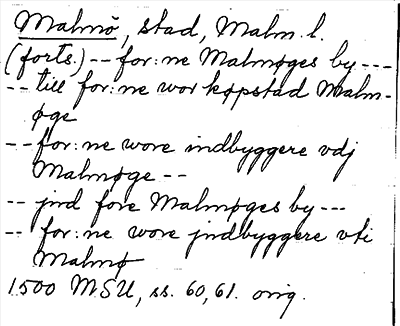 Malmö, stad, Malm. l.
(forts.) -- for:ne Malmøges by ---
-- till for:ne wor køpstad Malm-
øge
-- for:ne wore indbyggere vdj
Malmøge --
-- jnd fore Malmøges by ---
-- for:ne wore jndbyggere vti
Malmø
1500 MSU, ss. 60, 61. orig.